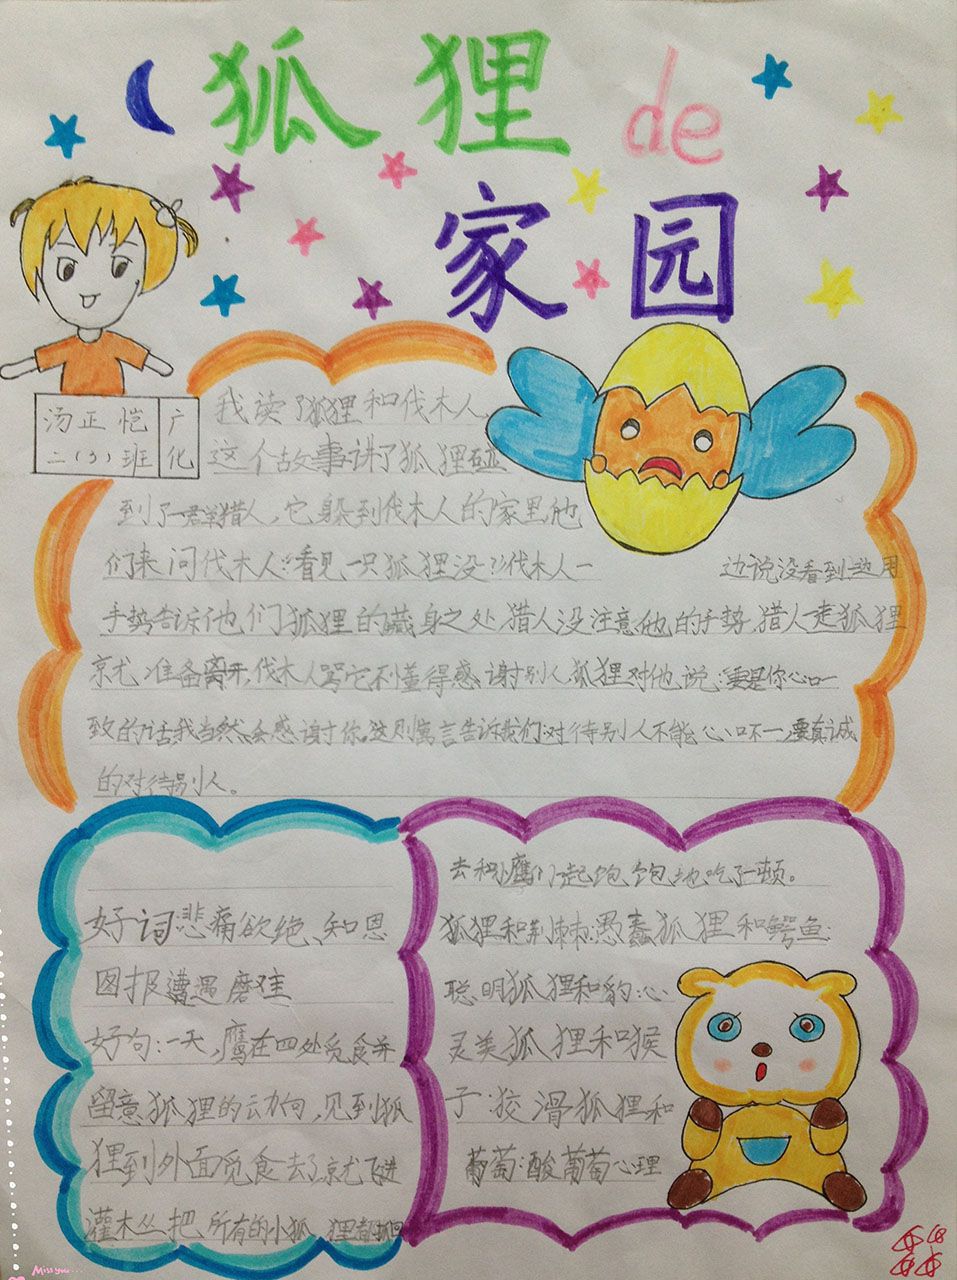 狐狸de
家园
汤正恺
二(3)班
广化
我读了狐狸和伐木人、
这个故事讲了狐狸碰
到了一群猎人,它躲到伐木人的家里他
们来问伐木人:"看见一只狐狸没?"伐木人一 边说没看到边用
手势告诉他们狐狸的藏身之处,猎人没注意他的手势,猎人走狐狸
就准备离开,伐木人骂它不懂得感谢别人狐狸对他说:要是你心口一
致的话,我当然会感谢你。这则寓言告诉我们:对待别人不能心口不一,要真诚
的对待别人。
好词:悲痛欲绝、知恩
图报遭遇磨难
好句:一天,鹰在四处觅食并
留意狐狸的动向,见到狐
狸到外面觅食去了,就飞进
灌木丛把所有的小狐狸都抓回
去和鹰们一起饱饱地吃了一顿。
狐狸和荆棘:愚蠢狐狸和鳄鱼:
聪明狐狸和豹:心
灵美狐狸和猴
子:狡滑狐狸和
葡萄:酸葡萄心理
Miss you...